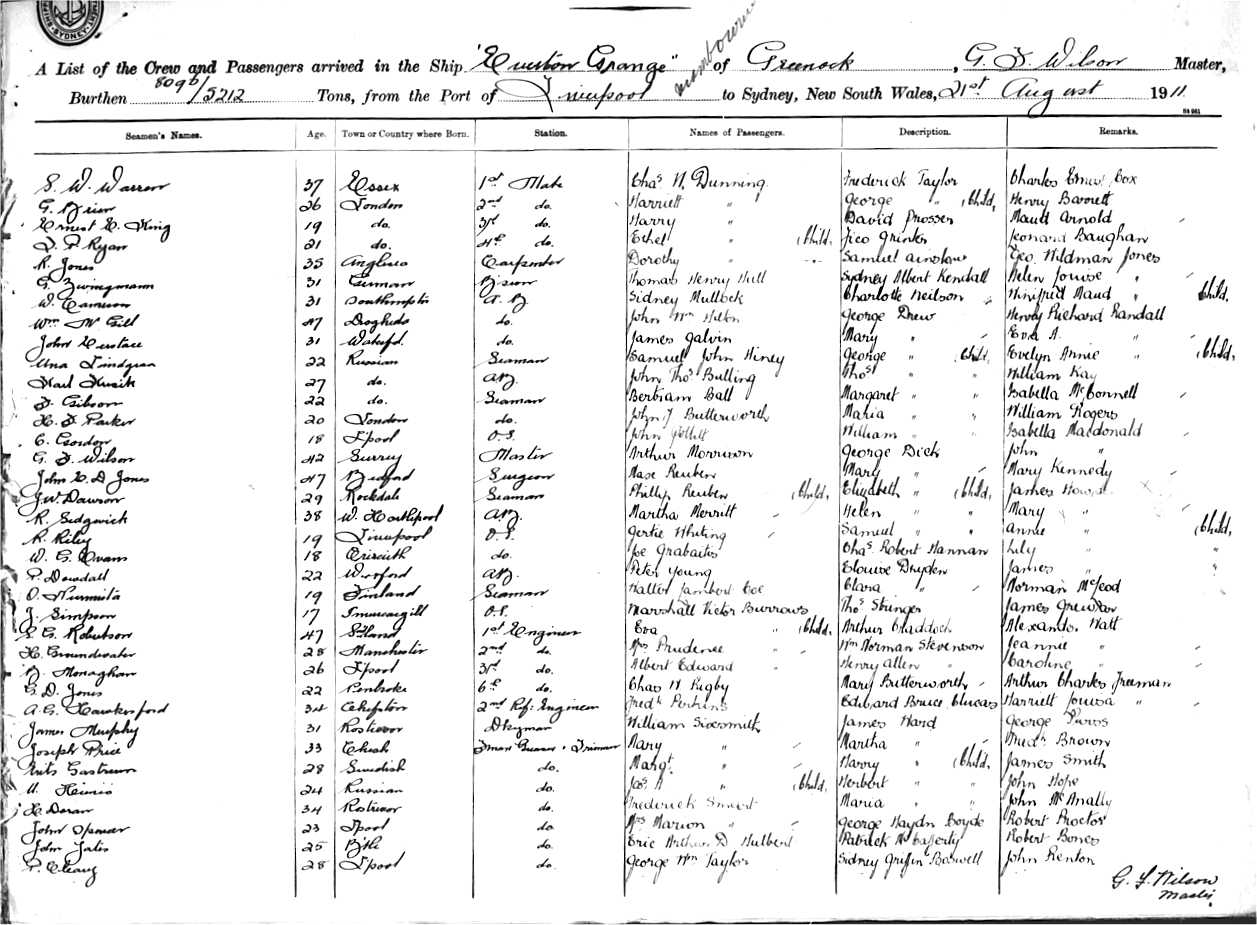 SYDNEY
A List of the Crew and Passengers arrived in the Ship "Everton Grange" of Greenock, G. F. Wilson Master,
Burthen 8096/5212 Tons, from the Port of Liverpool to Sydney, New South Wales, 21st August 1911.
Seamen's Names. Age. Town or Country where Born. Station. Names of Passengers. Description. Remarks.
S. W. Warren 37 Essex 1st Mate Chas H. Dunning Frederick Taylor Charles Ernest Cox
26 London 2nd do. Harriett " George " Child, Henry
Ernest E. King 19 do. 3rd do. Harry " David Prosser Maud Arnold
D. P. Ryan 21 do. 4th do. Ethel " Child, Leonard Baughan
R. Jones 35 Carpenter Dorothy " Samuel Geo. Wildman Jones
G. Zwingmann 31 German Thomas Henry Hull Sydney Albert Kendall Helen Louise "
W. Cameron 31 Southampton A.B. Sidney Mullock Charlotte Neilson Winifrid Maud " Child,
Wm McGill 47 Drogheda do. John Wm George Drew Henry Richard Randall
John Eustace 31 Waterfd. do. James Galvin Mary " Eva A. "
22 Russian Seaman Samuel John Hiney George " Child, Evelyn Annie " Child,
27 do. A.B. John Thos Bulling Thos " " William Kay
F. Gibson 22 do. Seaman Bertram Ball Margaret " " Isabella McConnell
H. F. Parker 20 London do. John J Butterworth Maria " " William Rogers
C. Gordon 18 L'pool O.S. John William " " Isabella Macdonald
G. F. Wilson 42 Surrey Master Arthur Morrison George Dick John "
John E. D. Jones 47 Bedford Surgeon Reuben Mary " Mary Kennedy
J.W. Dawson 29 Rockdale Seaman Phillip Reuben Child, Elizabeth " Child, James
R. Sedgwick 38 W. Hartlepool A.B. Martha Merritt Helen " " Mary "
R. Riley 19 Liverpool O.S. Gertie Whiting Samuel " " Annie " Child,
W. G. Evans 18 Criccieth do. Joe Chas Robert Hannan Lily " "
P. Dowdall 22 Wexford A.B. Peter Young Dryden James " "
19 Finland Seaman Walter Lambert Coe Clara " Norman McLeod
J. Simpson 17 Invercargill O.S. Marshall Victor Burrows Thos Stringer James
Robertson 47 1st Engineer Eva " Child, Arthur Craddock Watt
H. Groundwater 28 Manchester 2nd do. Mrs Prudence " Wm Norman Stevenson Jeannie "
Monaghan 26 L'pool 3rd do. Albert Edward " Henry Allen " Caroline "
G. D. Jones 22 Pembroke 6th do. Chas H Rigby Mary Butterworth Arthur Charles Freeman
A. G. 34 Chepstow 2nd Ref: Engineer Fredk Perkins Edward Bruce Harriett Louisa "
James Murphy 31 Rostrevor Dkyman William Sixsmith James Hard George
Joseph Price 33 Trimmer Mary " Martha " Fredk Brown
28 Swedish do. Margt. " Harry " Child, James Smith
24 Russian do. Jas. A " Child, Herbert " " John Hope
H. Doran 34 Rostrevor do. Frederick Maria " " John McAnally
John 23 L'pool do. Mrs Marion " George Haydn Robert Proctor
John 25 do. Eric Arthur D Hulbert Patrick McCafferty Robert Bones
28 L'pool do. George Wm Taylor Sidney Griffin John Renton
G. F. Wilson
Master